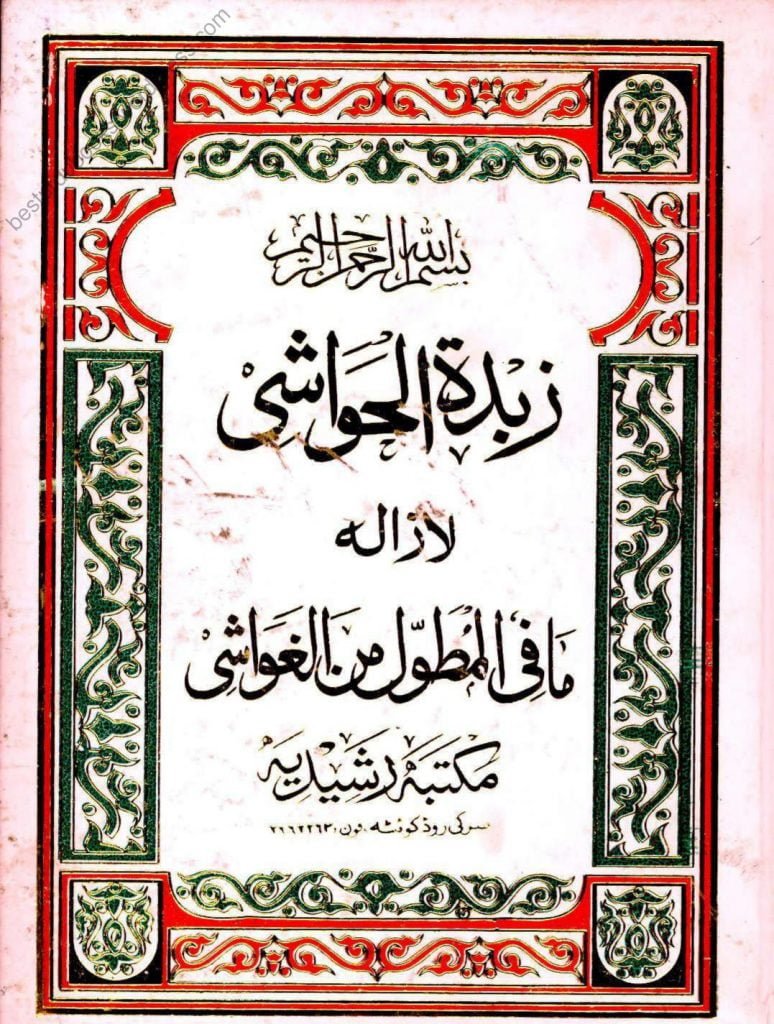 بسم الله الرحمن الرحيم
زبدة الحواشی
لازاله
ما فی المطول من الغواشی
مکتبہ رشیدیہ
سرکی روڈ کوئٹہ۔ فون: ۲۶۶۲۲۶۳